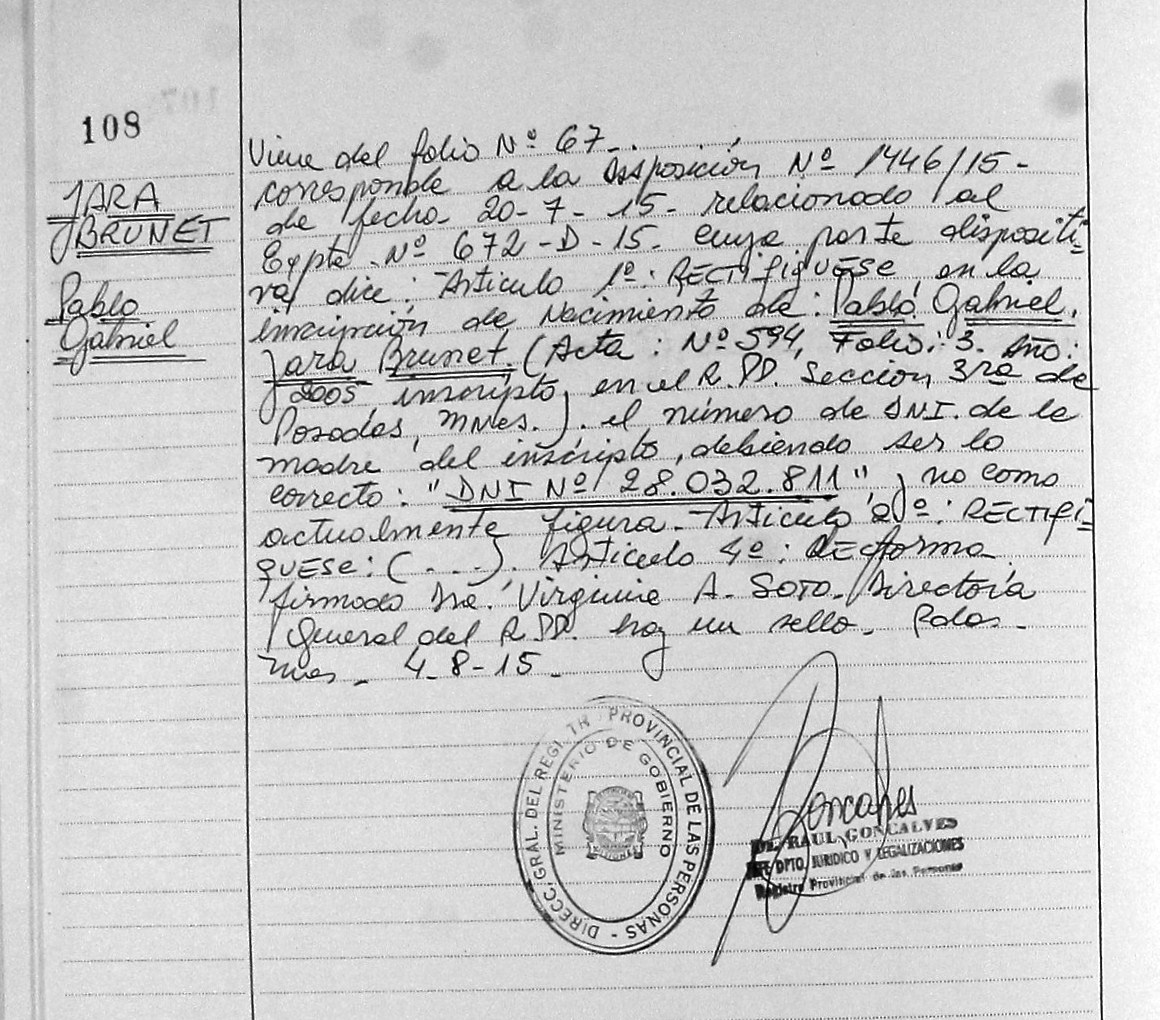 108
JARA
BRUNET
Pablo
Gabriel
Viene del folio Nº 67-.
corresponde a la Disposición Nº 1446/15-
de fecha 20-7-15- relacionado al
Expte Nº 672-D-15. cuya parte dispositi-
va dice: Articulo 1º: RECTIFIQUESE en la
inscripción de Nacimiento de: Pablo Gabriel,
Jara Brunet (Acta: Nº 594, Folio: 3. Año:
2005 inscripto, en el R.PP. Sección 3ra de
Posadas, Mnes.). el número de DNI. de la
madre del inscripto, debiendo ser lo
correcto: "DNI Nº 28.032.811" y no como
actualmente figura. Articulo 2º: RECTIFI-
QUESE: (...). Articulo 4º: De forma
firmado Dra. Virginia A. SOTO. Directora
General del R.PP. hay un sello. Pdas-
Mnes - 4-8-15-
DIRECC. GRAL. DEL REGI TR PROVINCIAL DE LAS PERSONAS -
MINISTERIO DE GOBIERNO
Goncalves
Dr. RAUL GONCALVES
JEFE DPTO. JURIDICO Y LEGALIZACIONES
Registro Provincial de las Personas